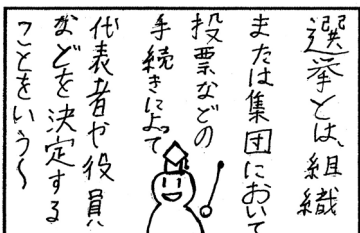 選挙とは、組織
または集団において
投票などの
手続きによって
代表者や役員
などを決定する
ことをいう〜